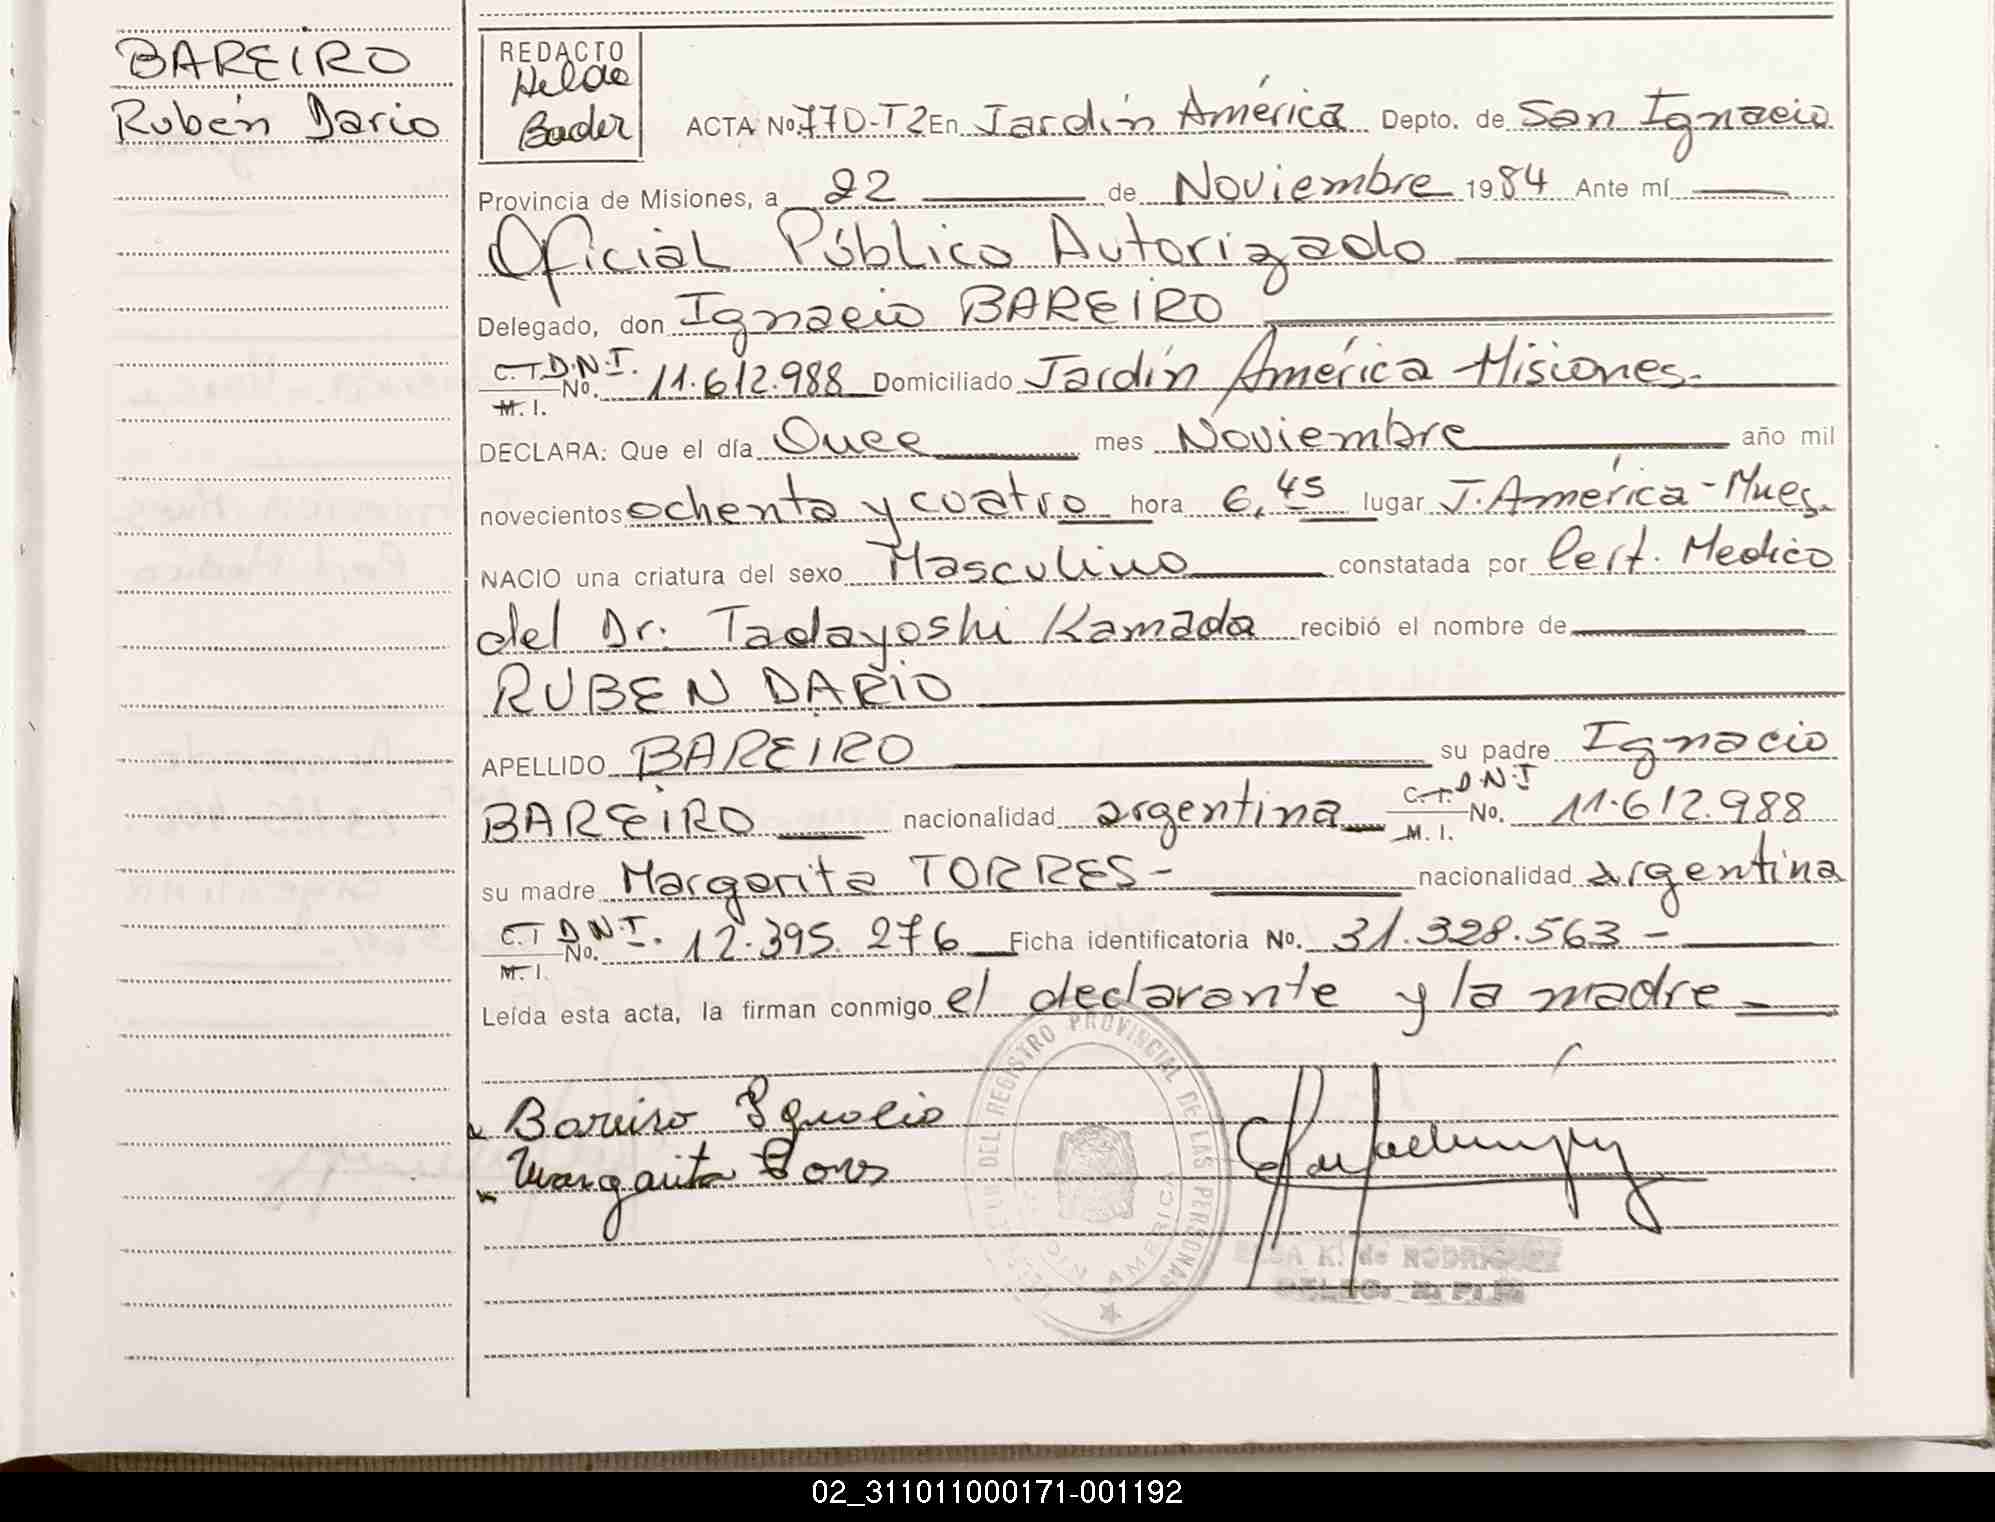 BAREIRO
Rubén Dario
REDACTO
Helda
Bader
ACTA No. 770-T2 En Jardín América Depto. de San Ignacio
Provincia de Misiones, a 22 de Noviembre 1984 Ante mí
Oficial Público Autorizado
Delegado, don Ignacio BAREIRO
C.I. D.N.I. M. I. No. 11.612.988 Domiciliado Jardín América Misiones.
DECLARA: Que el día Once mes Noviembre año mil
novecientos ochenta y cuatro hora 6,45 lugar J. América - Mnes.
NACIO una criatura del sexo Masculino constatada por Cert. Medico
del Dr. Tadayoshi Kamada recibió el nombre de
RUBEN DARIO
APELLIDO BAREIRO su padre Ignacio
BAREIRO nacionalidad argentina C.I. D.N.I M. I. No. 11.612.988
su madre Margarita TORRES - nacionalidad argentina
C.I D.N.I. M. I. No. 12.395.276 Ficha identificatoria No. 31.328.563 -
Leída esta acta, la firman conmigo el declarante y la madre
Bareiro Ignacio
Margarita Torres
DEL REGISTRO PROVINCIAL DE LAS PERSONAS
AMERICA
K. de RODRIGUEZ
02_311011000171-001192